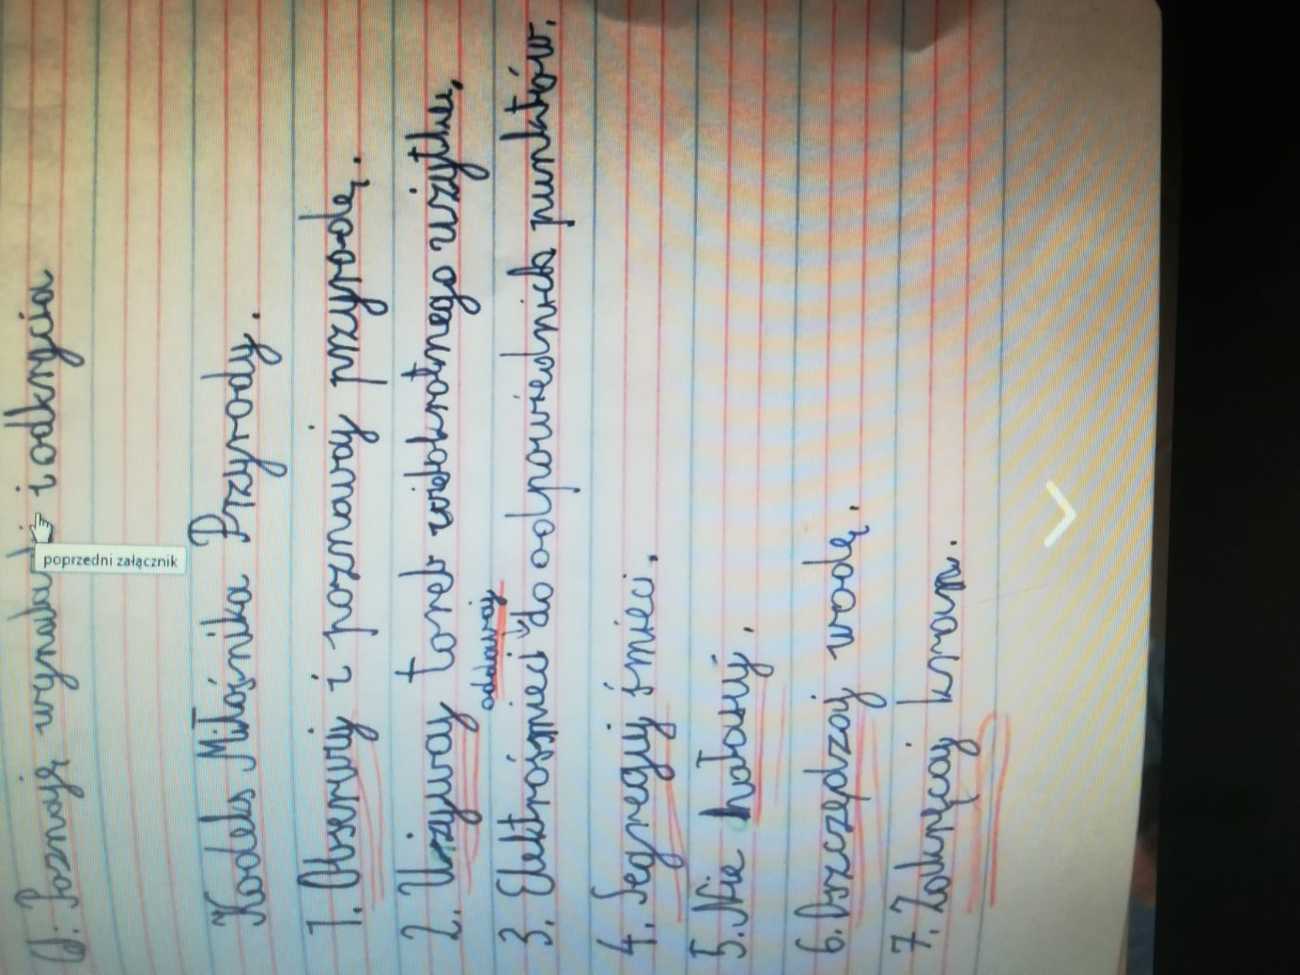 i odkrycia
poprzedni załącznik
Kodeks Miłośnika Przyrody.
1. Obserwuj i poznawaj przyrodę.
2. Używaj toreb wielokrotnego użytku.
oddawaj
3. Elektrośmieci do odpowiednich punktów.
4. Segreguj śmieci.
5. Nie hałasuj.
6. Oszczędzaj wodę.
7. Zakręcaj kran.